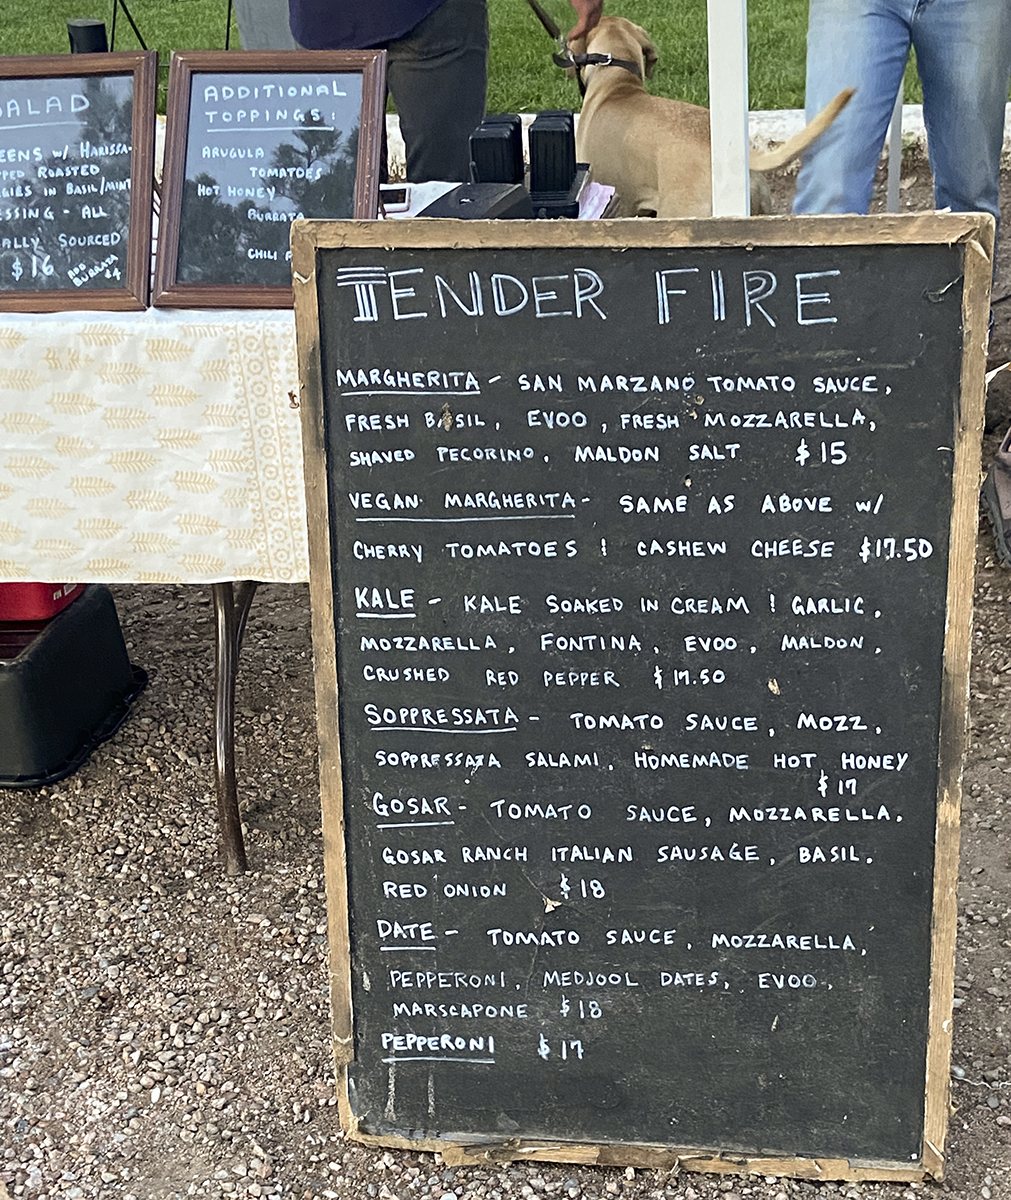 SALAD
W/ HARISSA
ROASTED
IN BASIL/MINT
- ALL
SOURCED
$16
ADD
BURRATA
$4
ADDITIONAL
TOPPINGS:
ARUGULA
TOMATOES
HOT HONEY
BURRATA
CHILI
TENDER FIRE
MARGHERITA - SAN MARZANO TOMATO SAUCE,
FRESH BASIL, EVOO, FRESH MOZZARELLA,
SHAVED PECORINO, MALDON SALT $15
VEGAN MARGHERITA - SAME AS ABOVE W/
CHERRY TOMATOES ! CASHEW CHEESE $17.50
KALE - KALE SOAKED IN CREAM ! GARLIC,
MOZZARELLA, FONTINA, EVOO, MALDON,
CRUSHED RED PEPPER $17.50
SOPPRESSATA - TOMATO SAUCE, MOZZ,
SOPPRESSATA SALAMI, HOMEMADE HOT HONEY
$17
GOSAR - TOMATO SAUCE, MOZZARELLA,
GOSAR RANCH ITALIAN SAUSAGE, BASIL,
RED ONION $18
DATE - TOMATO SAUCE, MOZZARELLA,
PEPPERONI, MEDJOOL DATES, EVOO,
MARSCAPONE $18
PEPPERONI $17